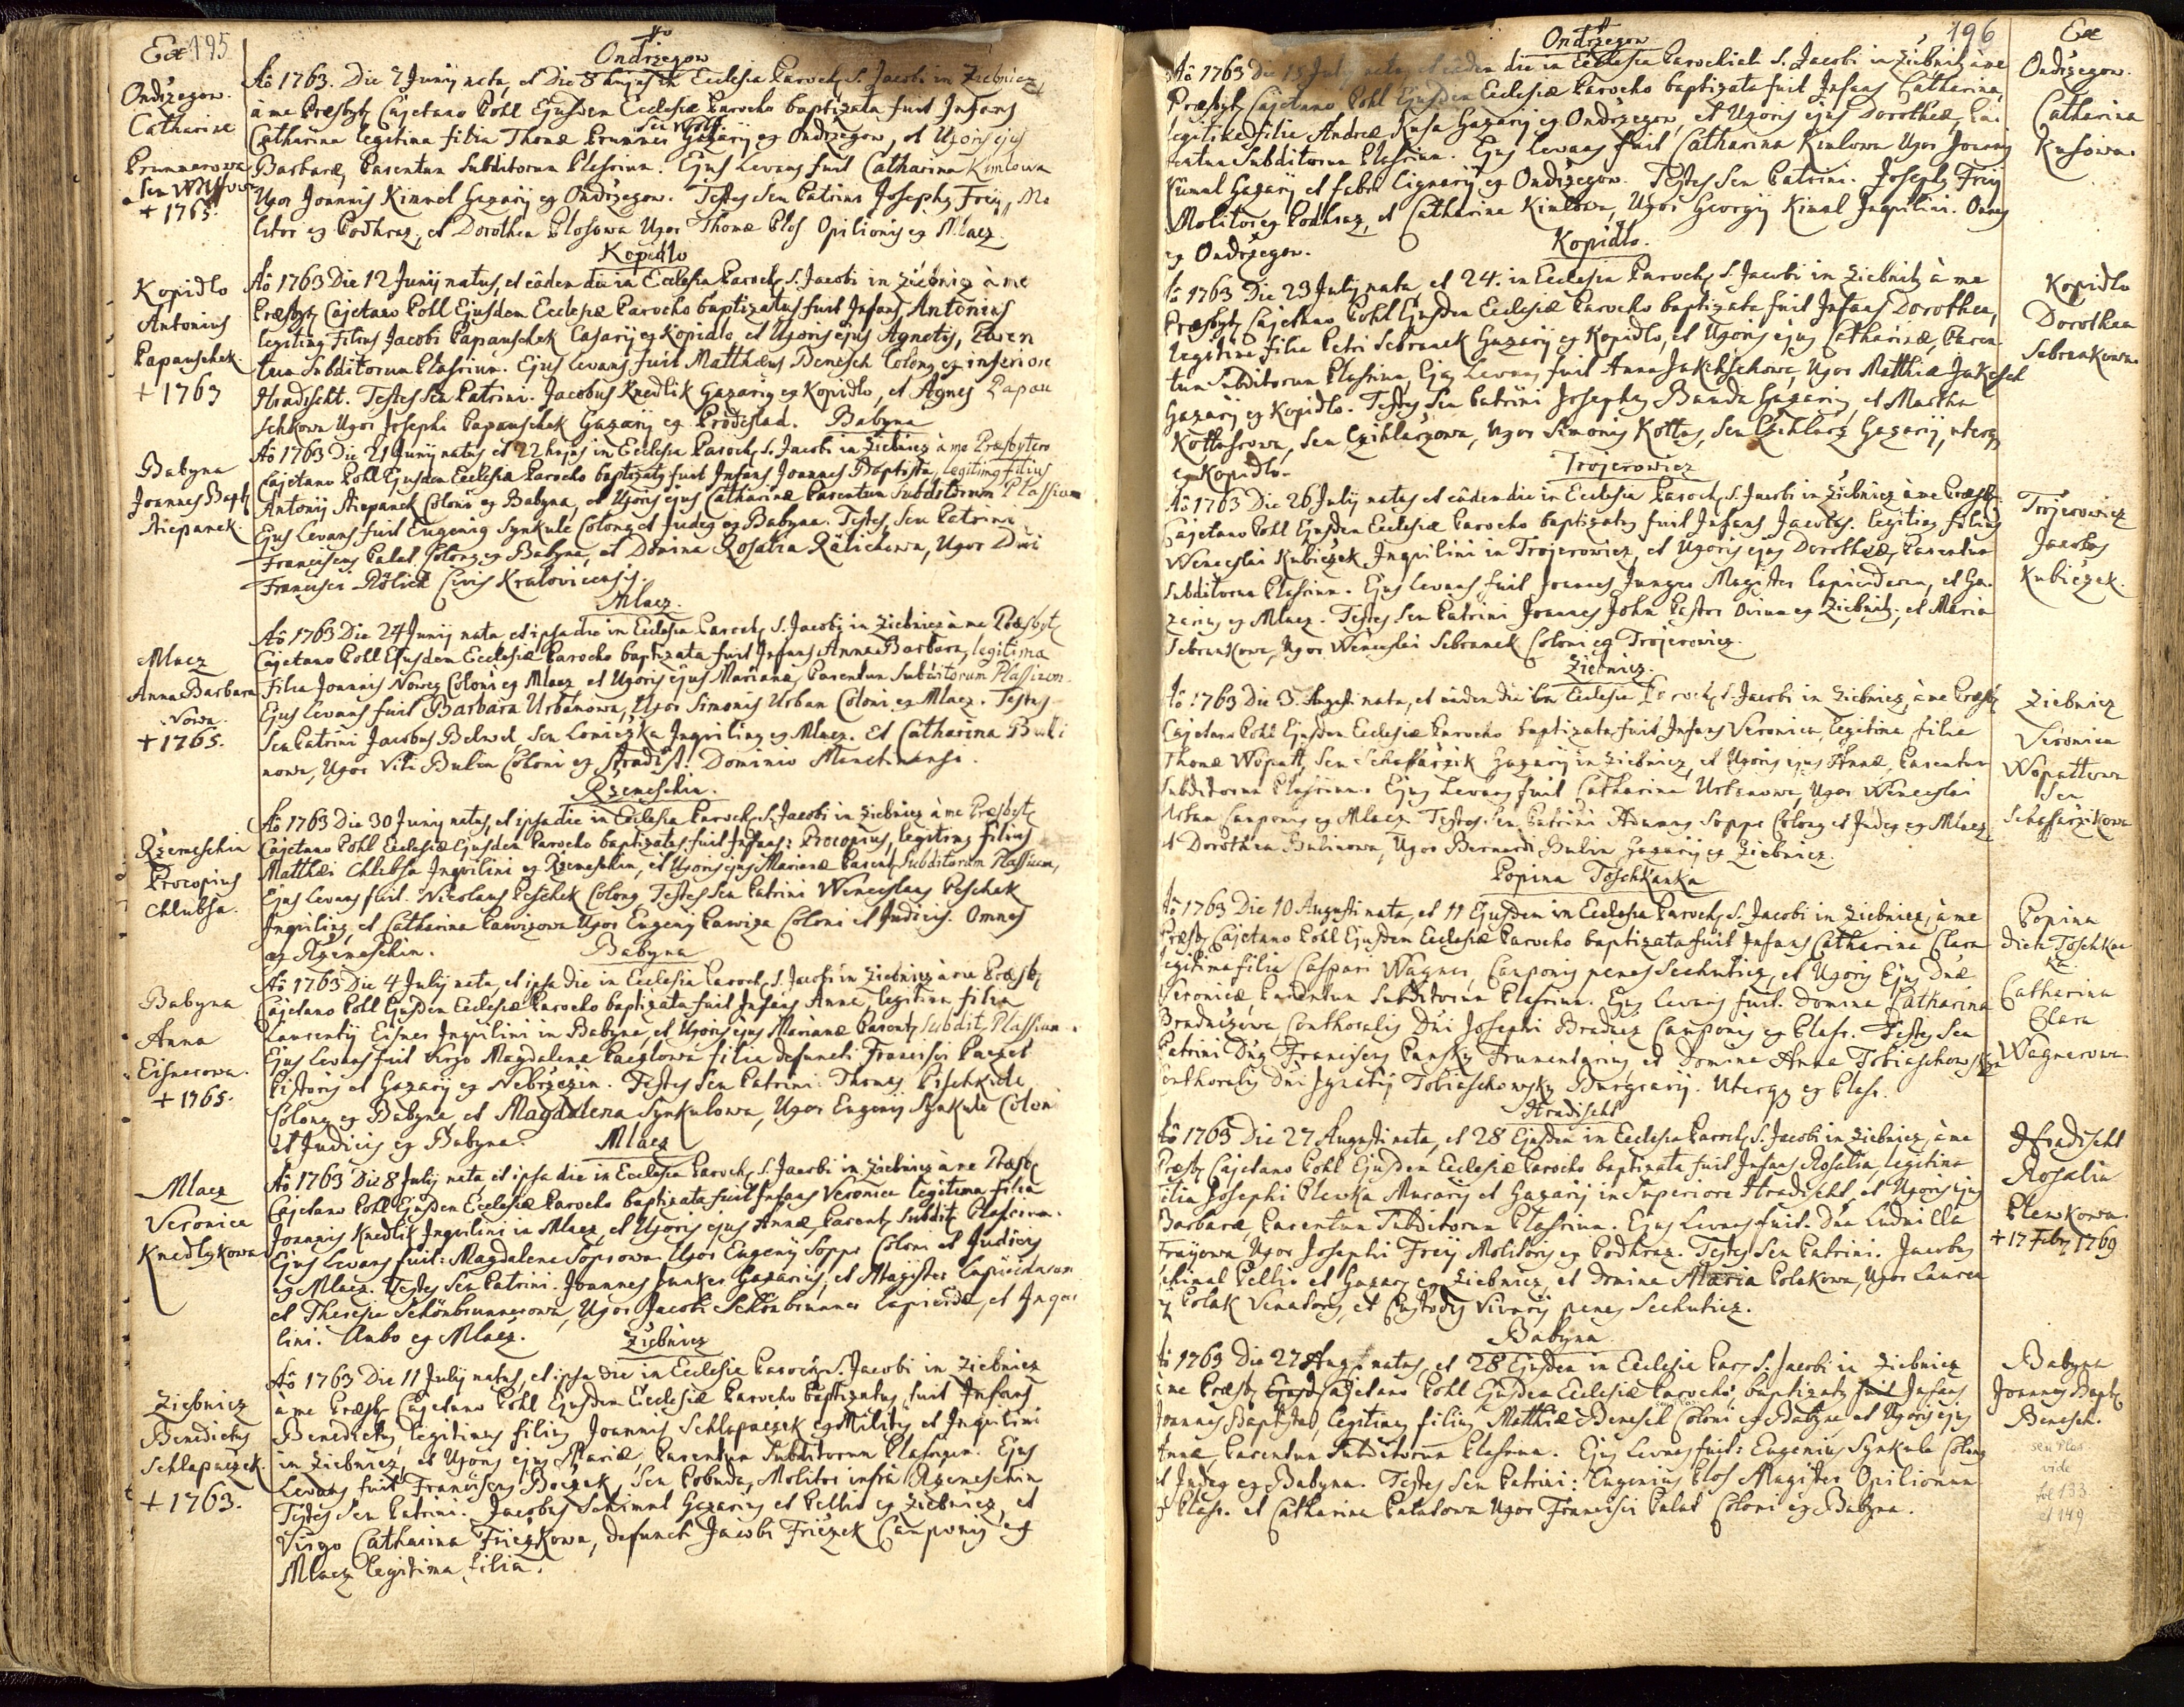 Ex 195
Ondrzegow
Ondržegow.
Catharine
Prunnerowa
+ 1765.
Aõ 1763. Die 7 Junij nata, et Die 8 hujus in Ecclesia Paroch. S. Jacobi in Ziebnicz
à me Præsbyt. Cajetano Pohl Ejusdem Ecclesiæ Parocho baptizata fuit Infans
seu Wolf
Catharina legitima filia Thomæ Prunner Gazarij ex Ondrzegow, et Uxoris ejus
Barbaræ, Parentum Subditorum Plassium. Ejus Levans fuit Catharina Kimlowa
Uxor Joannis Kimmel Gazarij ex Ondrzegow. Testes Seu Patrini Josephus Frey, Mo
litor ex Podhraz, et Dorothea Plosowa Uxor Thomæ Plos Opilionis ex Mlacz.
Kopidlo
Kopidlo
Antonius
Papauschek.
+ 1763
Aõ 1763 Die 12 Junij natus, et eâdem die in Ecclesia Paroch. S. Jacobi in Ziebnicz à me
Præsbyt. Cajetano Pohl Ejusdem Ecclesiæ Parocho baptizatus fuit Infans Antonius
legitimus Filius Jacobi Papauschek Casarij ex Kopidlo, et Uxoris ejus Agnetis, Paren
tum Subditorum Plassium. Ejus Levans fuit Matthæus Benesch Colonus ex inferiore
Hradischt. Testes Seu Patrini. Jacobus Knedlik Gazarius ex Kopidlo, et Agnes Papau
schkowa Uxor Josephi Papauschek Gazarij ex Brodeslad. Babyna
Babyna
Joannes Bapt.
Stiepanek.
Aõ 1763 Die 21 Junij natus et 22 hujus in Ecclesia Paroch. S. Jacobi in Ziebnicz à me Præsbytero
Cajetano Pohl Ejusdem Ecclesiæ Parocho baptizatus fuit Infans Joannes Baptista, legitimus filius
Antonij Stiepanek Coloni ex Babyna, et Uxoris ejus Catharinæ Parentum Subditorum Plassium
Ejus Levans fuit Eugenius Synkule Colonus et Judex ex Babyna. Testes, Seu Patrini
Franciscus Palat Colonus ex Babyna, et Domina Rosalia Rölichowa, Uxor Dni
Francisci Rölich Civis Kralovicensis.
Mlacz.
Mlacz
Anna Barbara
Nowa.
+ 1765.
Aõ 1763 Die 24 Junij nata, et ipsa die in Ecclesia Paroch. S. Jacobi in Ziebnicz à me Præsbyt.
Cajetano Pohl Ejusdem Ecclesiæ Parocho baptizata fuit Infans Anna Barbara, legitima
filia Joannis Nowey Coloni ex Mlacz et Uxoris ejus Marianæ, Parentum Subditorum Plassium.
Ejus Levans fuit Barbara Urbanowa, Uxor Simonis Urban Coloni ex Mlacz. Testes
Seu Patrini Jacobus Belwel Seu Loniczka Inquilinus ex Mlacz. Et Catharina Buli
nowa, Uxor Viti Bulin Coloni ex Hradist. Dominio Manetinensi.
Rzemeschin.
Rzemeschin
Procopius
Chlubsa.
Aõ 1763 Die 30 Junij natus, et ipsa die in Ecclesia Paroch. S. Jacobi in Ziebnicz à me Præsbyt.
Cajetano Pohl Ecclesiæ Ejusdem Parocho baptizatus fuit Infans: Procopius, legitimus filius
Matthæi Chlubsa Inquilini ex Rzemeschin, et Uxoris ejus Marianæ Parent. Subditorum Plassium,
Ejus Levans fuit. Nicolaus Peschek Colonus Testes Seu Patrini Wenceslaus Peschek
Inquilinus, et Catharina Pawizowa Uxor Eugenij Pawiza Coloni et Judicis. Omnes
ex Rzemeschin. Babyna
Babyna
Anna
Eisnerowa.
+ 1765.
Aõ 1763 Die 4 Julij nata, et ipsa die in Ecclesia Paroch. S. Jacobi in Ziebnicz à me Præsb.
Cajetano Pohl Ejusdem Ecclesiæ Parocho baptizata fuit Infans Anna, legitima filia
Laurentij Eisner Inquilini in Babyna, et Uxoris ejus Marianæ Parent. Subdit. Plassium.
Ejus Levans fuit Virgo Magdalena Paczlowa filia defuncti Francisci Paczel
Pistoris et Gazarij ex Nebrzezin. Testes Seu Patrini: Thomas Pischkule
Colonus ex Babyna et Magdalena Synkulowa, Uxor Eugenij Synkule Coloni
et Judicis ex Babyna. Mlacz
Mlacz
Veronica
Knedlykowa
Aõ 1763 Die 8 Julij nata et ipsa die in Ecclesia Paroch. S. Jacobi in Ziebnicz à me Præsb.
Cajetano Pohl Ejusdem Ecclesiæ Parocho baptizata fuit Infans Veronica legitima filia
Joannis Knedlik Inquilini in Mlacz, et Uxoris ejus Annæ, Parent. Subdit. Plassium.
Ejus Levans fuit: Magdalena Soprowa. Uxor Eugenij Soppr Coloni et Judicis
ex Mlacz. Testes Seu Patrini. Joannes Junker Gazarius, et Magister Lapicidarum
et Theresia Schönbrunnerowa, Uxor Jacobi Schönbrunner Lapicidæ, et Inqui
lini. Ambo ex Mlacz. Ziebnicz
Ziebnicz
Benedictus
Schlapaczek.
+ 1763.
Aõ 1763 Die 11 Julij natus, et ipsa die in Ecclesia Paroch. S. Jacobi in Ziebnicz
à me Præsb. Cajetano Pohl Ejusdem Ecclesiæ Parocho baptizatus fuit Infans
Benedictus, legitimus filius Joannis Schlapaczek exMilitis, et Inquilini
in Ziebnicz, et Uxoris ejus Mariæ Parentum Subditorum Plassium. Ejus
Levans fuit Franciscus Boczek, Seu Pobuda, Molitor infra Rzemeschin
Testes Seu Patrini. Jacobus Schimul Gazarius et Pellio ex Ziebnicz, et
Virgo Catharina Friczkowa, defuncti Jacobi Friczek Cauponis ex
Mlacz legitima filia.
196
Ex
Ondrzegow
Aõ 1763 Die 15 July nata, et eâdem die in Ecclesia Parochiali S. Jacobi in Ziebnitz à me
Præsbyt. Cajetano Pohl Ejusdem Ecclesiæ Parocho baptizata fuit Infans Catharina,
legitima filia Andreæ Kusa Gazarij ex Ondrzegow, et Uxoris ejus Dorotheæ, Pa-
rentum Subditorum Plassium. Ejus Levans fuit Catharina Kimlowa Uxor Joannis
Kimml Gazarij et fabri Lignarij ex Ondrzegow. Testes Seu Patrini. Josephus Frey
Molitor ex Podhraz, et Catharina Kimlowa, Uxor Georgij Kimml Inquilini. Omnes
ex Ondrzegow.
Ondržegow.
Catharina
Kusowa.
Kopidlo.
Aõ 1763 Die 23 July nata, et 24. in Ecclesia Paroch. S. Jacobi in Ziebnitz à me
Præsbyt. Cajetano Pohl Ejusdem Ecclesiæ Parocho baptizata fuit Infans Dorothea,
legitima filia Petri Sebranek Gazarij ex Kopidlo, et Uxoris ejus Catharinæ, Paren-
tum Subditorum Plassium, Ejus Levans fuit Anna Jakchschowa, Uxor Matthiæ Jakesch
Gazarij ex Kopidlo. Testes Seu Patrini Josephus Banda Gazarius, et Martha
Kottasrowa, Seu Czihlarzowa, Uxor Simonis Kottas, Seu Czihlarz Gazarij, uterq.
ex Kopidlo.
Kopidlo
Dorothea
Sebrankowa.
Trojerowicz
Aõ 1763 Die 26 Julij natus et eâdem die in Ecclesia Paroch. S. Jacobi in Ziebnicz à me Præsb.
Cajetano Pohl Ejusdem Ecclesiæ Parocho baptizatus fuit Infans Jacobus. legitimus filius
Wenceslai Kubiczek Inquilini in Trojerowicz, et Uxoris ejus Dorotheæ, Parentum
Subditorum Plassium. Ejus Levans fuit Joannes Junger Magister Lapicidarum, et Ga-
zarius ex Mlacz. Testes Seu Patrini Joannes John Pastor Ovium ex Ziebnitz, et Maria
Sebrankowa, Uxor Wenceslai Sebranek Coloni ex Trojerowicz.
Trojerowicz
Jacobus
Kubiczek.
Ziebnicz.
Aõ 1763 Die 3. August. nata, et eâdem die in Ecclesia Paroch. S. Jacobi in Ziebnicz, à me Præsb.
Cajetano Pohl Ejusdem Ecclesiæ Parocho baptizata fuit Infans Veronica, legitima filia
Thomæ Wopatt, Seu Schaffarzik Gazarij in Ziebnicz, et Uxoris ejus Annæ, Parentum
Subditorum Plassium. Ejus Levans fuit Catharina Urbanowa, Uxor Wenceslai
Urban Cauponis ex Mlacz. Testes Seu Patrini Adamus Soppr Colonus et Judex ex Mlacz
et Dorothea Bulinowa, Uxor Bernardi Bulin Gazarij ex Ziebnicz.
Ziebnicz
Veronica
Wopattowa
Seu
Schaffarzikowa
Popina Toschkanka
Aõ 1763 Die 10 Augusti nata, et 11 Ejusdem in Ecclesia Paroch. S. Jacobi in Ziebnicz, à me
Præsb. Cajetano Pohl Ejusdem Ecclesiæ Parocho baptizata fuit Infans Catharina Clara
legitima filia Caspari Wagner, Cauponis penes Sechuticz, et Uxoris Ejus Dnæ
Veronicæ Parentum Subditorum Plassium. Ejus Levans fuit. Domina Catharina
Bradaczowa Conthoralis Dni Josephi Bradacz Cauponis ex Plass. Testes Seu
Patrini Dnus Franciscus Pansky Frumentarius, et Domina Anna Tobiaschowskya
Conthoralis Dni Ignatij Tobiaschowsky Burgravij. Uterq. ex Plass.
Popina
dicta Toschkan
ka
Catharina
Clara
Wagnerowa.
Hradischt
Aõ 1763 Die 27 Augusti nata, et 28 Ejusdem in Ecclesia Paroch. S. Jacobi in Ziebnicz, à me
Præsb. Cajetano Pohl Ejusdem Ecclesiæ Parocho baptizata fuit Infans Rosalia, legitima
filia Josephi Plewka Murarij et Gazarij in Superiore Hradischt, et Uxoris ejus
Barbaræ, Parentum Subditorum Plassium. Ejus Levans fuit. Dna Ludmilla
Freyowa, Uxor Josephi Frey Molitoris ex Podhraz. Testes Seu Patrini. Jacobus
Schimal Pellio et Gazar. ex Ziebnicz, et Domina Maria Polakowa, Uxor Lauren
ij Polak Venatoris, et Custodis Vivarij penes Sechuticz.
Hradischt
Rosalia
Plewkowa.
+ 17 Febr. 1769
Babyna
Aõ 1763 Die 27 Aug. natus, et 28 Ejusdem in Ecclesia Par. S. Jacobi in Ziebnicz
à me Præsb. Cajetano Pohl Ejusdem Ecclesiæ Parocho baptizatus fuit Infans
Joannes Baptista, legitimus filius Matthiæ Benesch Coloni ex Babyna et Uxoris ejus
Annæ, Parentum Subditorum Plassium. Ejus Levans fuit: Eugenius Synkula Colonus
et Judex ex Babyna. Testes Seu Patrini: Eugenius Plos Magister Opilionum
ex Plass. et Catharina Palatowa Uxor Francisci Palat Coloni ex Babyna.
Babyna
Joannes Bapt.
Benesch.
seu Plos
vide
fol 133
et 149